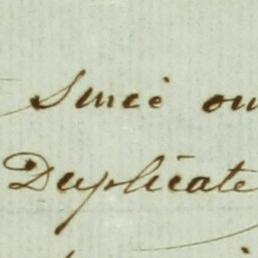 Since ou
Duplicate